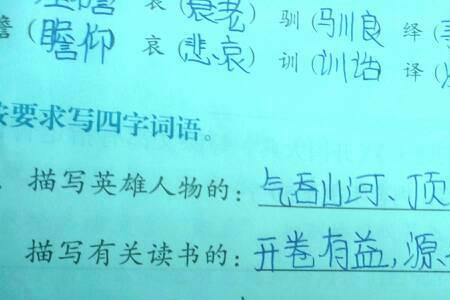 衰(衰老 驯(驯良 绎
瞻(瞻仰 哀(悲哀) 训(训诰 译
按要求写四字词语。
描写英雄人物的:气吞山河、顶
描写有关读书的:开卷有益,源